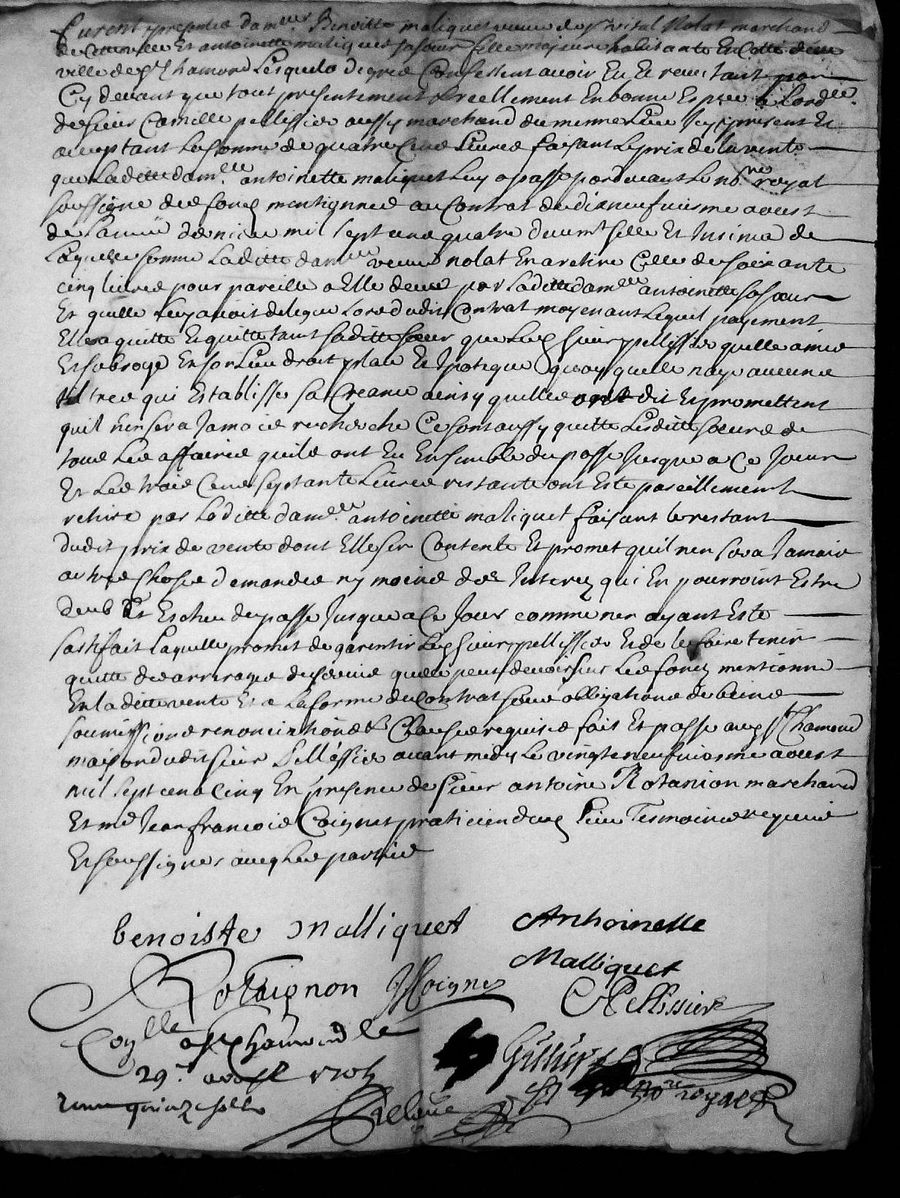 furent presentes dam.lles Benoitte maliquet veuve de s.r vital Nolat marchand
de cette ville Et antoinette maliquet sa soeur fille majeure habitante En cette ditte
ville de S.t Chamond Lesquels de gré Confessent avoir Eu Et receu tant par
Cy devant que tout presentement Et reellement En bonne Espece
de sieur Camille pellissier aussy marchand du mesme Lieu Icy present Et
acceptant La somme de quatre Cent Livres faisant Le prix de la vente
que Laditte dam.lle antoinette maliquet Luy a passé pardevant Le no.re royal
soussigné des fonds mentionnés au Contrat du dixneufuiesme aoust
de L'année derniere mil sept cent quatre
Laquelle somme Laditte dam.lle veuve nolat En a retiré Celle de soixante
cinq livres pour pareille a Elle deue par Laditte dam.lle antoinette sa soeur
Et quelle Luy avoit delegué Lors dudit Contrat moyenant Lequel payement
Elle a quitté Et quitte tant saditte soeur que Led sieur pellissier quelle a mis
Et subrogé En son Lieu droit place Et Ipotique quoy quelle naye aucune
tiltres qui Establisse sa Creance ainsy quelles ont dit Et promettent
quil n'en sera Jamais recherché Ce sont aussy quitté Lesdittes soeurs de
tous Les affaires quils ont Eu Ensemble du passé Jusque a Ce Jour
Et Les trois Cent septante Livres restante ont Esté pareillement
retiré par Laditte dam.lle antoinette maliquet faisant le restant
dudit prix de vente dont Elle se Contente Et promet quil n'en sera Jamais
autres choses demandés ny moins des Interez qui En pourroint Estre
deub Et Escheu du passé Jusque a Ce Jour comme en ayant Esté
sastifait Laquelle promet de garentir Led sieur pellissier Et de le faire tenir
quitte des arrerages de servis quelle peut devoir sur Les fonds mentionné
En laditte vente Et a La forme du Contrat sous obligations de biens
soumissions renonciations Et Clauses requises fait Et passé aud S.t Chamond
maison dudit sieur Pellissier avant midy Le vingt neufuiesme aoust
mil sept cent Cinq En presence de sieur antoine Rotanion marchand
Et m.e Jean francois Coignet praticien dud Lieu Tesmoins requis
Et soussignes avec Les parties
benoiste Malliquet Anthoinette
Malliquet
Rotaignon JfCoignet CPellissier
Con.lle a S.t Chamond le
29.e aoust 1705
receu quinze sols
no.re royal